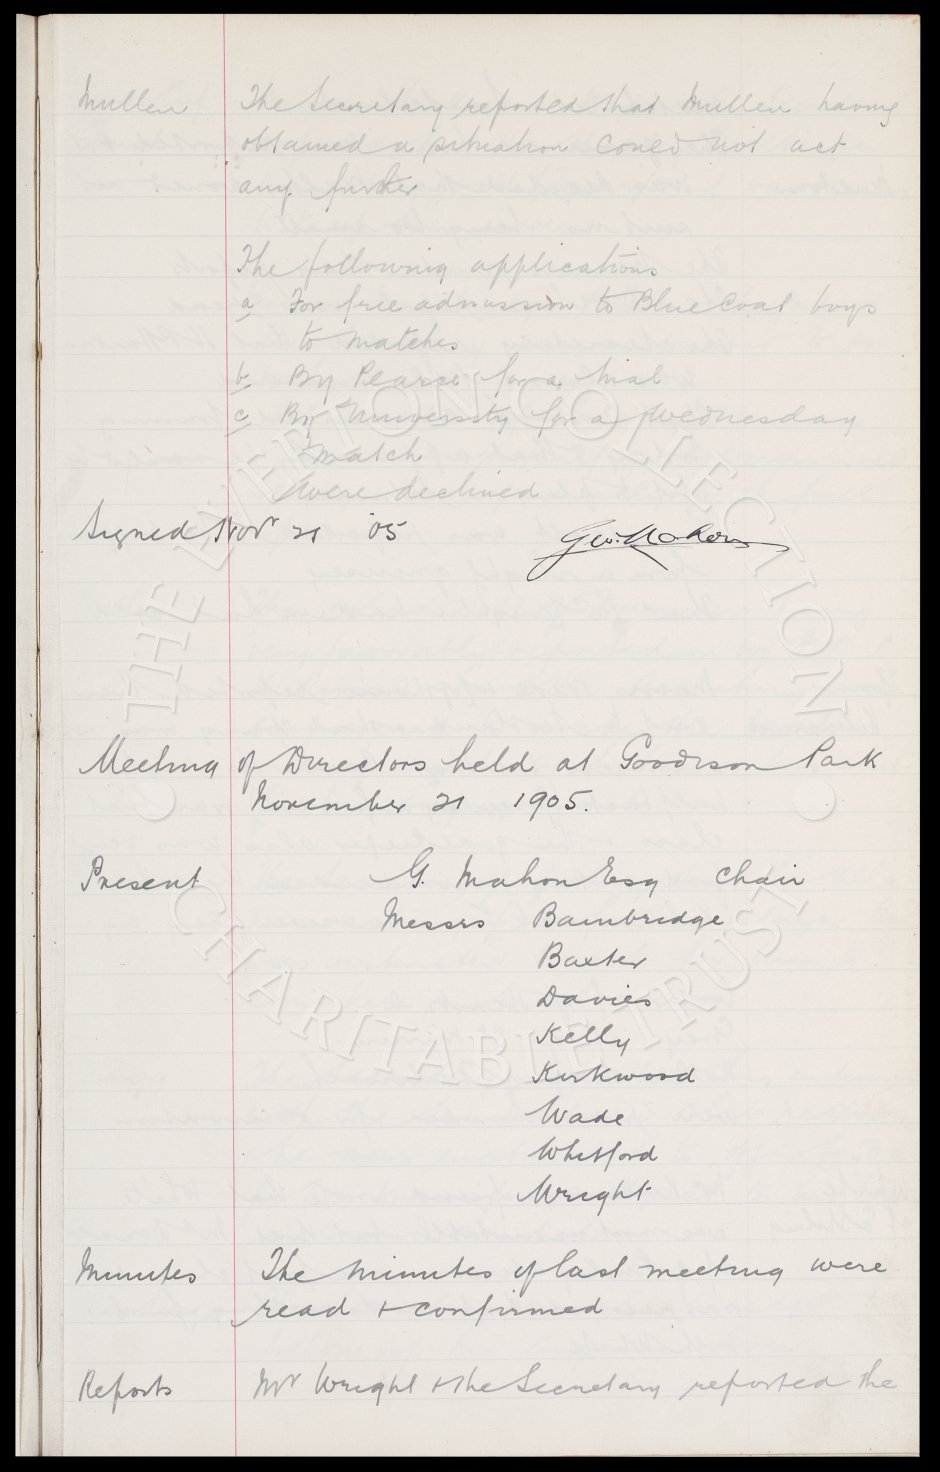 Mullen The Secretary reported that Mullen having
obtained a situation could not act
any further
The following applications
a For free admission to Blue Coat boys
to matches
b By Pearce for a trial
c By University for a Wednesday
match
were declined
Signed Novr 21 '05 Geo. Mahon
Meeting of Directors held at Goodison Park
November 21 1905.
Present G. Mahon Esq Chair
Messrs Bainbridge
Baxter
Davies
Kelly
Kirkwood
Wade
Whitford
Wright
Minutes The minutes of last meeting were
read + confirmed
Reports Mr Wright + the Secretary reported the
THE EVERTON COLLECTION
CHARITABLE TRUST